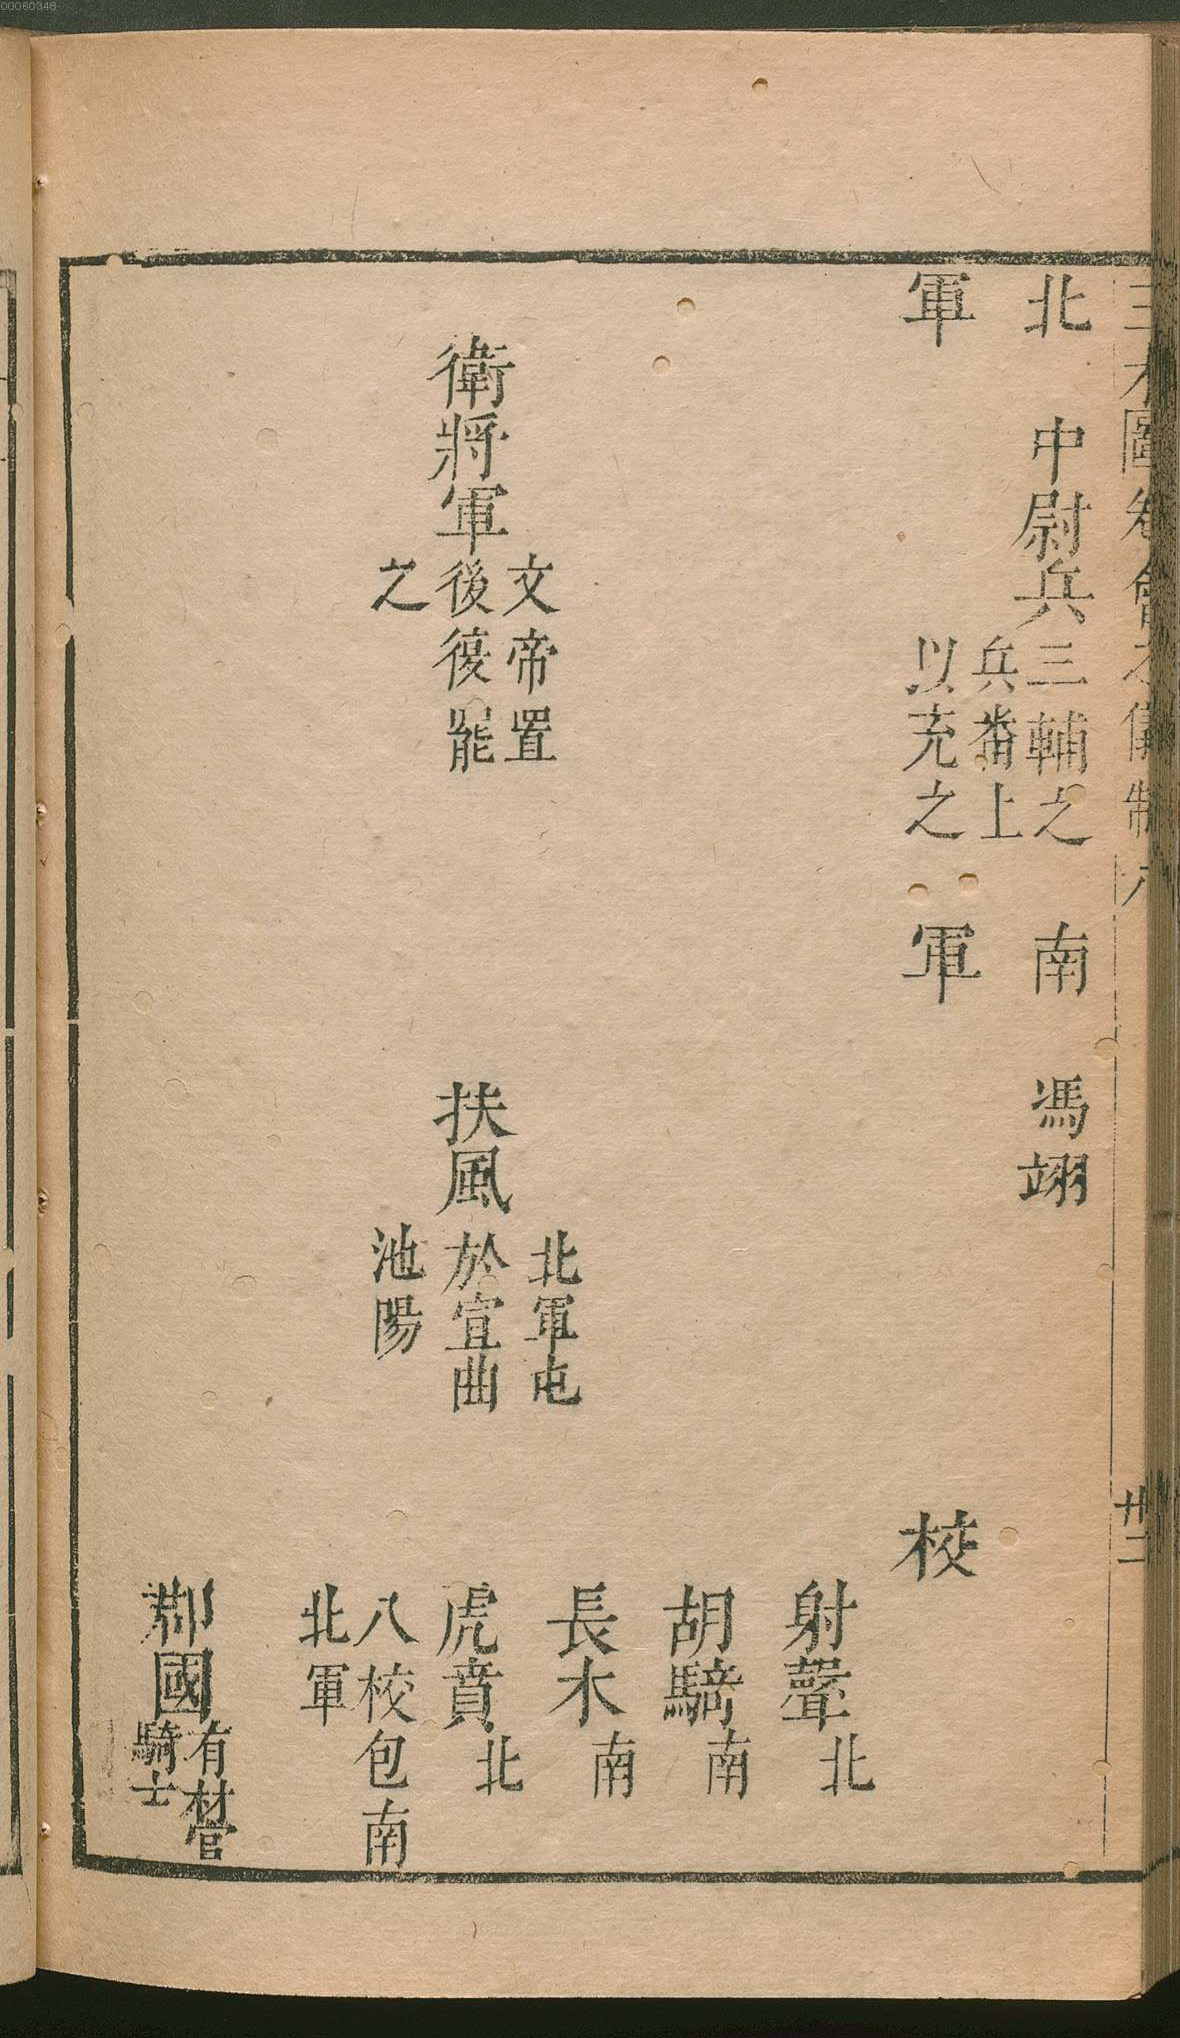 00060348
三才圖會 卷之 儀制八 廿二
北
軍
中尉兵
三輔之
兵番上
以充之
衛將軍
文帝置
後復罷
之
南
軍
馮翊
扶風
北軍屯
於宜曲
池陽
校
射聲北
胡騎南
長水南
虎賁北
八校包南
北軍
郡國
有材官
騎士